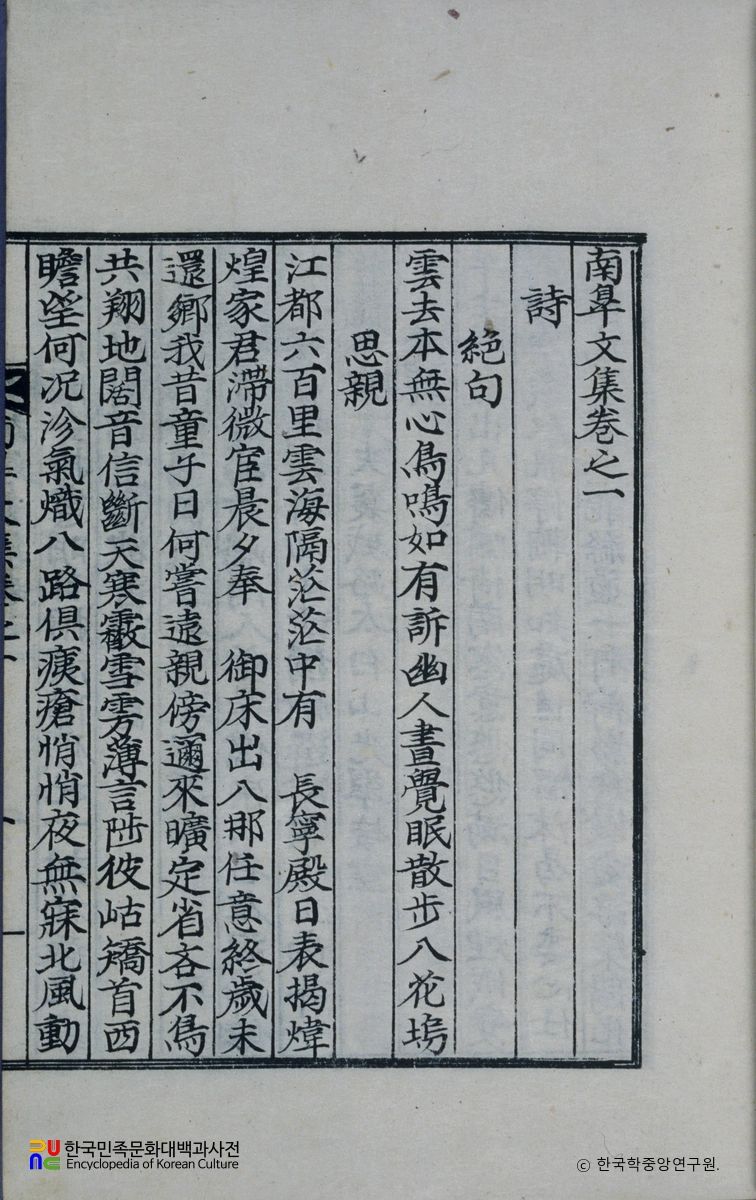 南皐文集卷之一
詩
絕句
雲去本無心鳥鳴如有訴幽人晝覺眠散步入花塢
思親
江都六百里雲海隔茫茫中有 長寧殿日表揭煒
煌家君滯微宦晨夕奉 御床出入那任意終歲未
還鄉我昔童子日何嘗遠親傍邇來曠定省吝不鳥
共翔地闊音信斷天寒霰雪雱薄言陟彼岵矯首西
瞻望何況沴氣熾八路俱痍瘡悄悄夜無寐北風動
한국민족문화대백과사전
Encyclopedia of Korean Culture
ⓒ 한국학중앙연구원.